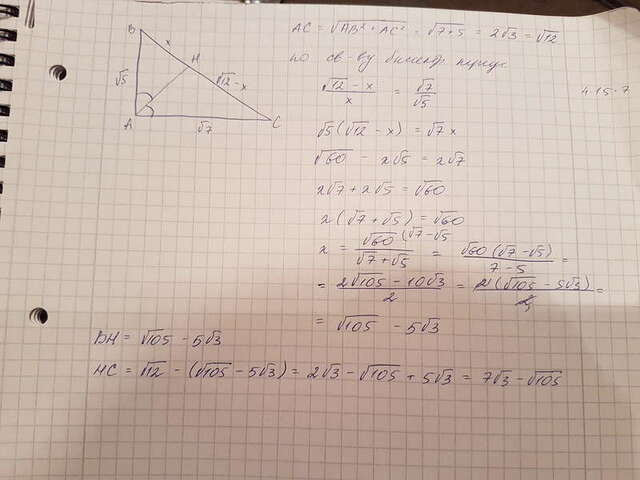 B
x
H
√5
√12 - x
A
√7
C
AC = √AB² + AC² = √7+5 = 2√3 = √12
по св-ву биссектр
(√12 - x)/x = √7/√5
4·15·7
√5(√12 - x) = √7x
√60 - x√5 = x√7
x√7 + x√5 = √60
x(√7 + √5) = √60
x = √60(√7-√5/(√7+√5) = √60(√7-√5)/(7-5) =
= (2√105 - 10√3)/2 = 2(√105 - 5√3)/2 =
= √105 - 5√3
BH = √105 - 5√3
HC = √12 - (√105 - 5√3) = 2√3 - √105 + 5√3 = 7√3 - √105